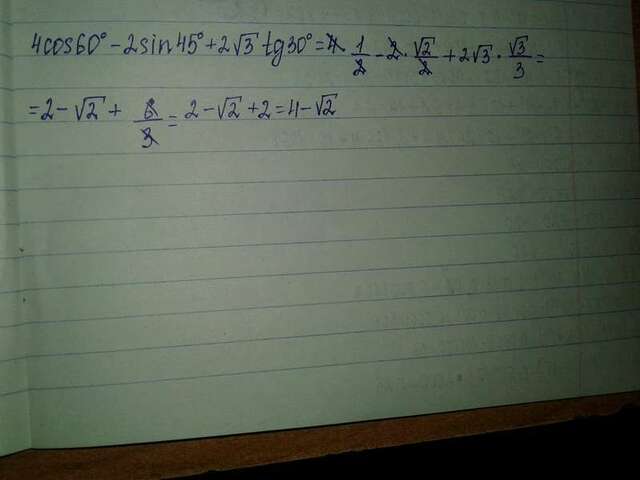 4cos60° - 2sin45° + 2√3 tg30° = 4 1/2 - 2 · √2/2 + 2√3 · √3/3 =
= 2 - √2 + 6/3 = 2 - √2 + 2 = 4 - √2